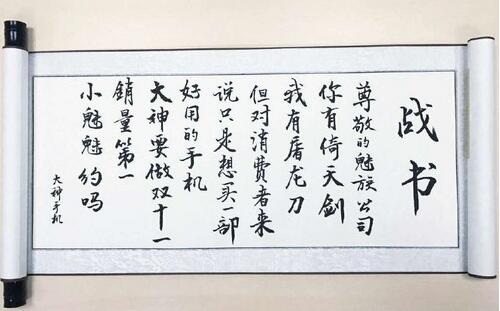 战书
尊敬的魅族公司
你有倚天剑
我有屠龙刀
但对消费者来
说只是想买一部
好用的手机
大神要做双十一
銷量第一
小魅魅约吗
大神手机